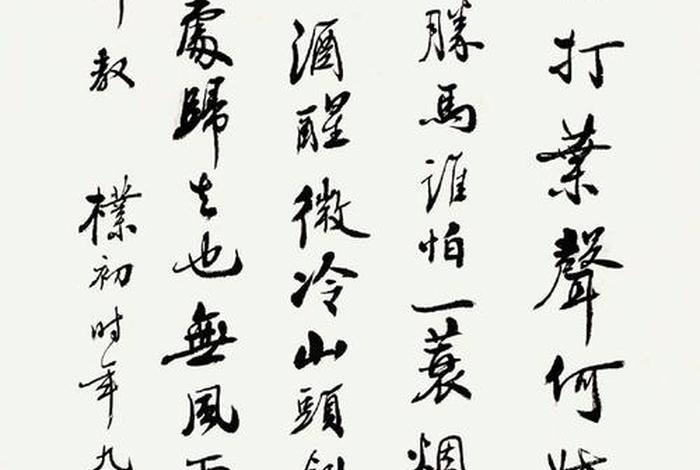 打葉聲何妨
勝馬誰怕一蓑烟
酒醒微冷山頭斜
處歸去也無風雨
教 樸初时年九